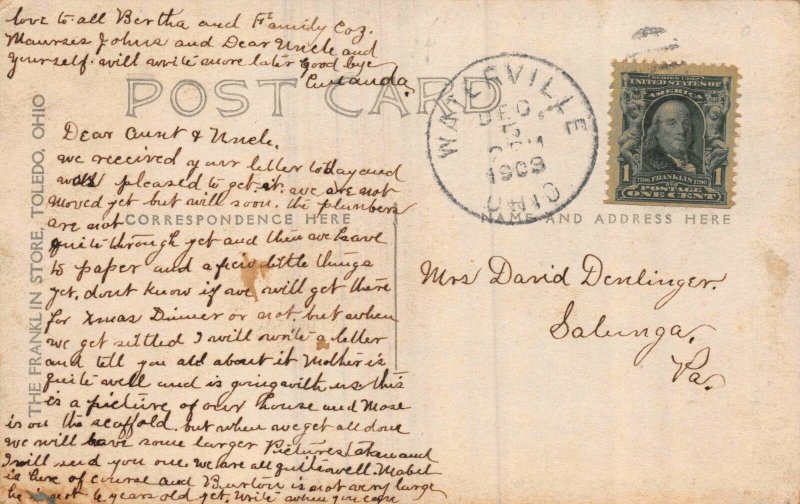 love to all Bertha and Family Coz.
Maurses Johns and Dear Uncle and
yourself. will write more later good bye
Amanda.
POST CARD
Dear Aunt & Uncle.
we received your letter to day and
was pleased to get it. we are not
moved yet but will soon. the plumbers
are not
quite through yet and then we have
to paper and a few little things
yet. dont know if we will get there
for Xmas Dinner or not but when
we get settled I will write a letter
and tell you all about it Mother is
quite well and is going with us this
is a picture of our house and Mose
is on the scaffold. but when we get all done
we will have some larger Pictures taken and
I will send you one. we are all quite well. Mabel
is here of course and Burton is not very large
he is not 6 years old yet. write when you can
CORRESPONDENCE HERE
THE FRANKLIN STORE, TOLEDO, OHIO
WATERVILLE
DEC
PM
OHIO
SERIES 1902
UNITED STATES OF
AMERICA
1706 FRANKLIN 1790
1 POSTAGE 1
ONE CENT
NAME AND ADDRESS HERE
Mrs David Denlinger.
Salunga.
Pa.